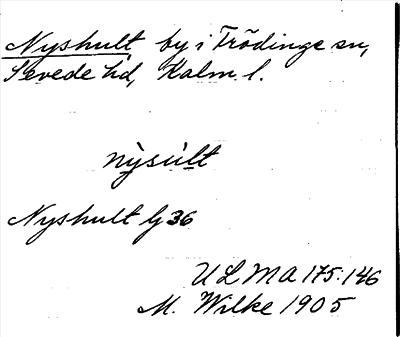 Nyshult, by i Frödinge sn,
Sevede hd, Kalm. l.
nỳsúlt
Nyshult Gg 36
ULMA 175:146
M. Wilke 1905